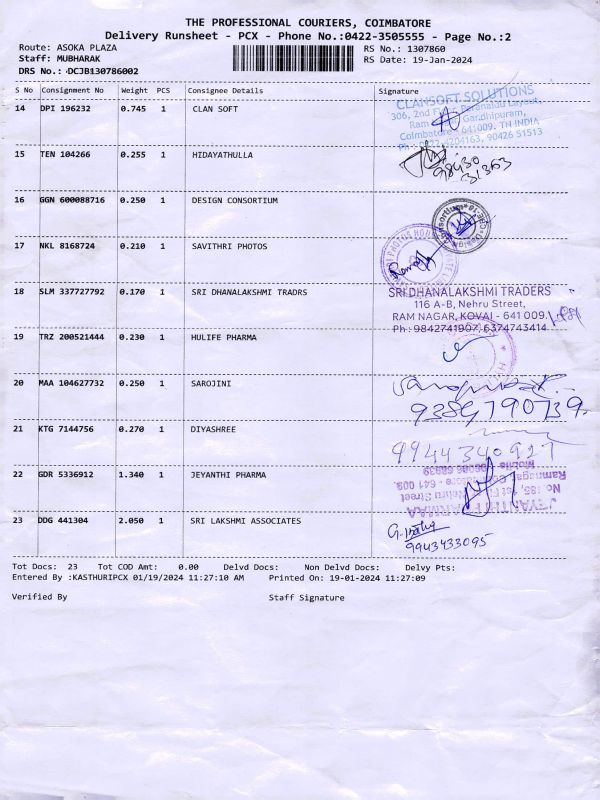 THE PROFESSIONAL COURIERS, COIMBATORE
Delivery Runsheet - PCX - Phone No.:0422-3505555 - Page No.:2
Route: ASOKA PLAZA
Staff: MUBHARAK
DRS No.: DCJB130786002
RS No.: 1307860
RS Date: 19-Jan-2024
S No Consignment No Weight PCS Consignee Details Signature
14 DPI 196232 0.745 1 CLAN SOFT
CLANSOFT SOLUTIONS
306, 2nd Layout,
Ram Gandhipuram,
Coimbatore - 641009. TN INDIA
Ph : 0422-4204163, 90426 51513
15 TEN 104266 0.255 1 HIDAYATHULLA
98430
31363
16 GGN 600088716 0.250 1 DESIGN CONSORTIUM
17 NKL 8168724 0.210 1 SAVITHRI PHOTOS
18 SLM 337727792 0.170 1 SRI DHANALAKSHMI TRADRS
SRI DHANALAKSHMI TRADERS
116 A-B, Nehru Street,
RAM NAGAR, KOVAI - 641 009.
Ph : 9842741907, 6374743414
19 TRZ 200521444 0.230 1 HULIFE PHARMA
20 MAA 104627732 0.250 1 SAROJINI
9289790739.
21 KTG 7144756 0.270 1 DIYASHREE
9944340927
22 GDR 5336912 1.340 1 JEYANTHI PHARMA
JEYANTHI PHARMAA
No : 85, 1st Nehru Street
Ramnagar, - 641 009.
Mobile
23 DDG 441304 2.050 1 SRI LAKSHMI ASSOCIATES
9943433095
Tot Docs: 23 Tot COD Amt: 0.00 Delvd Docs: Non Delvd Docs: Delvy Pts:
Entered By :KASTHURIPCX 01/19/2024 11:27:10 AM Printed On: 19-01-2024 11:27:09
Verified By Staff Signature